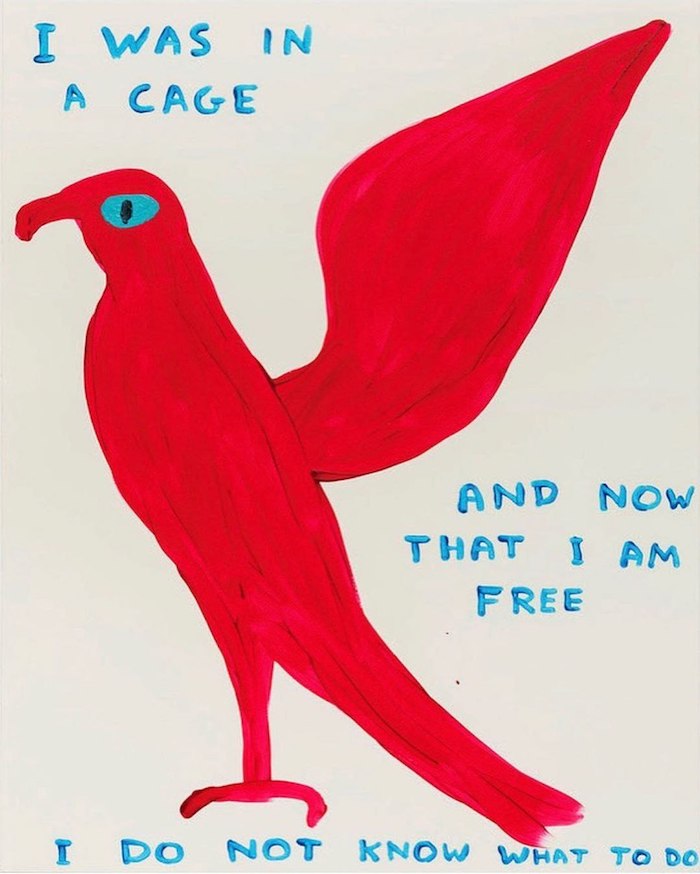 I WAS IN
A CAGE
AND NOW
THAT I AM
FREE
I DO NOT KNOW WHAT TO DO